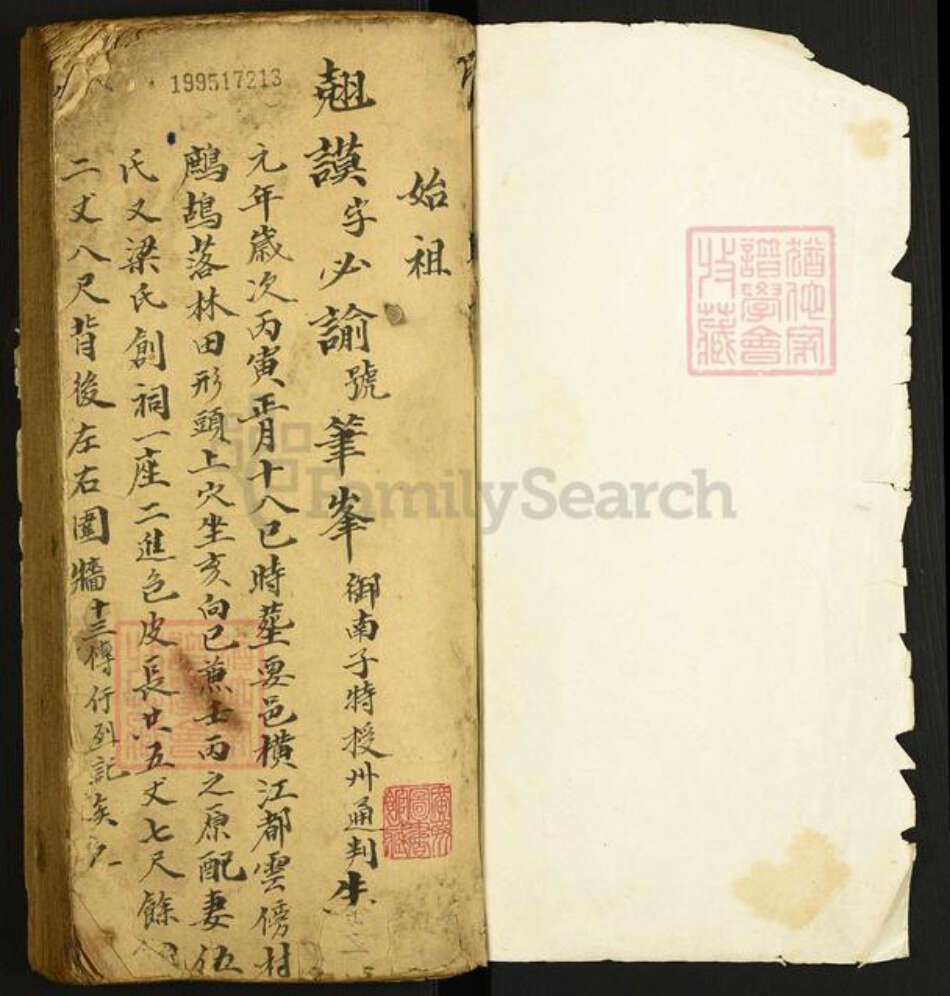 始祖
翹謨字必諭號筆峯御南子特授州通判生
元年歲次丙寅正月十八巳時塟要邑橫江都雲傍村
鷓鴣落林田形頭上穴坐亥向巳兼壬丙之原配妻伍
氏又梁氏創祠一座二進邑皮長廿五丈七尺餘
二丈八尺背後左右圍牆十三傳行列記
199517213
猶他家譜學會收藏
FamilySearch